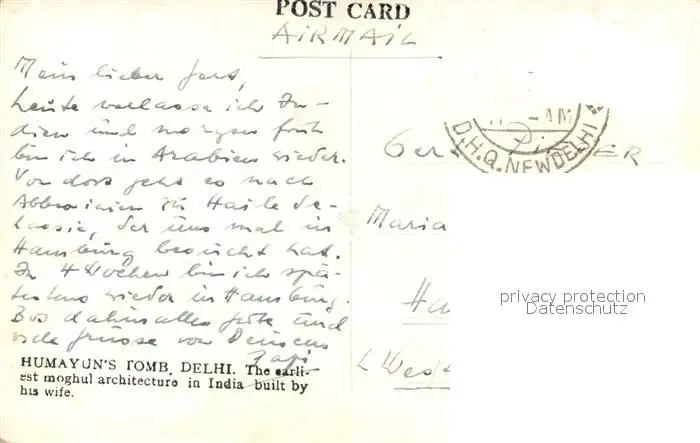 POST CARD
AIRMAIL
Mein lieber
heute verlasse ich In-
dien und morgen früh
bin ich in Arabien wieder.
Von dort geht es nach
Abbessinien zu Haile Se-
lassie, der uns mal in
Hamburg besucht hat.
In 4 Wochen bin ich spä-
testens wieder in Hamburg.
Bis dahin alles gute und
viele grüsse von Deinem
Papi
HUMAYUN'S TOMB, DELHI. The earli-
est moghul architecture in India built by
his wife.
-AM
D.H.Q. NEW DELHI
Ger
ER
Maria
Ha
West
privacy protection
Datenschutz